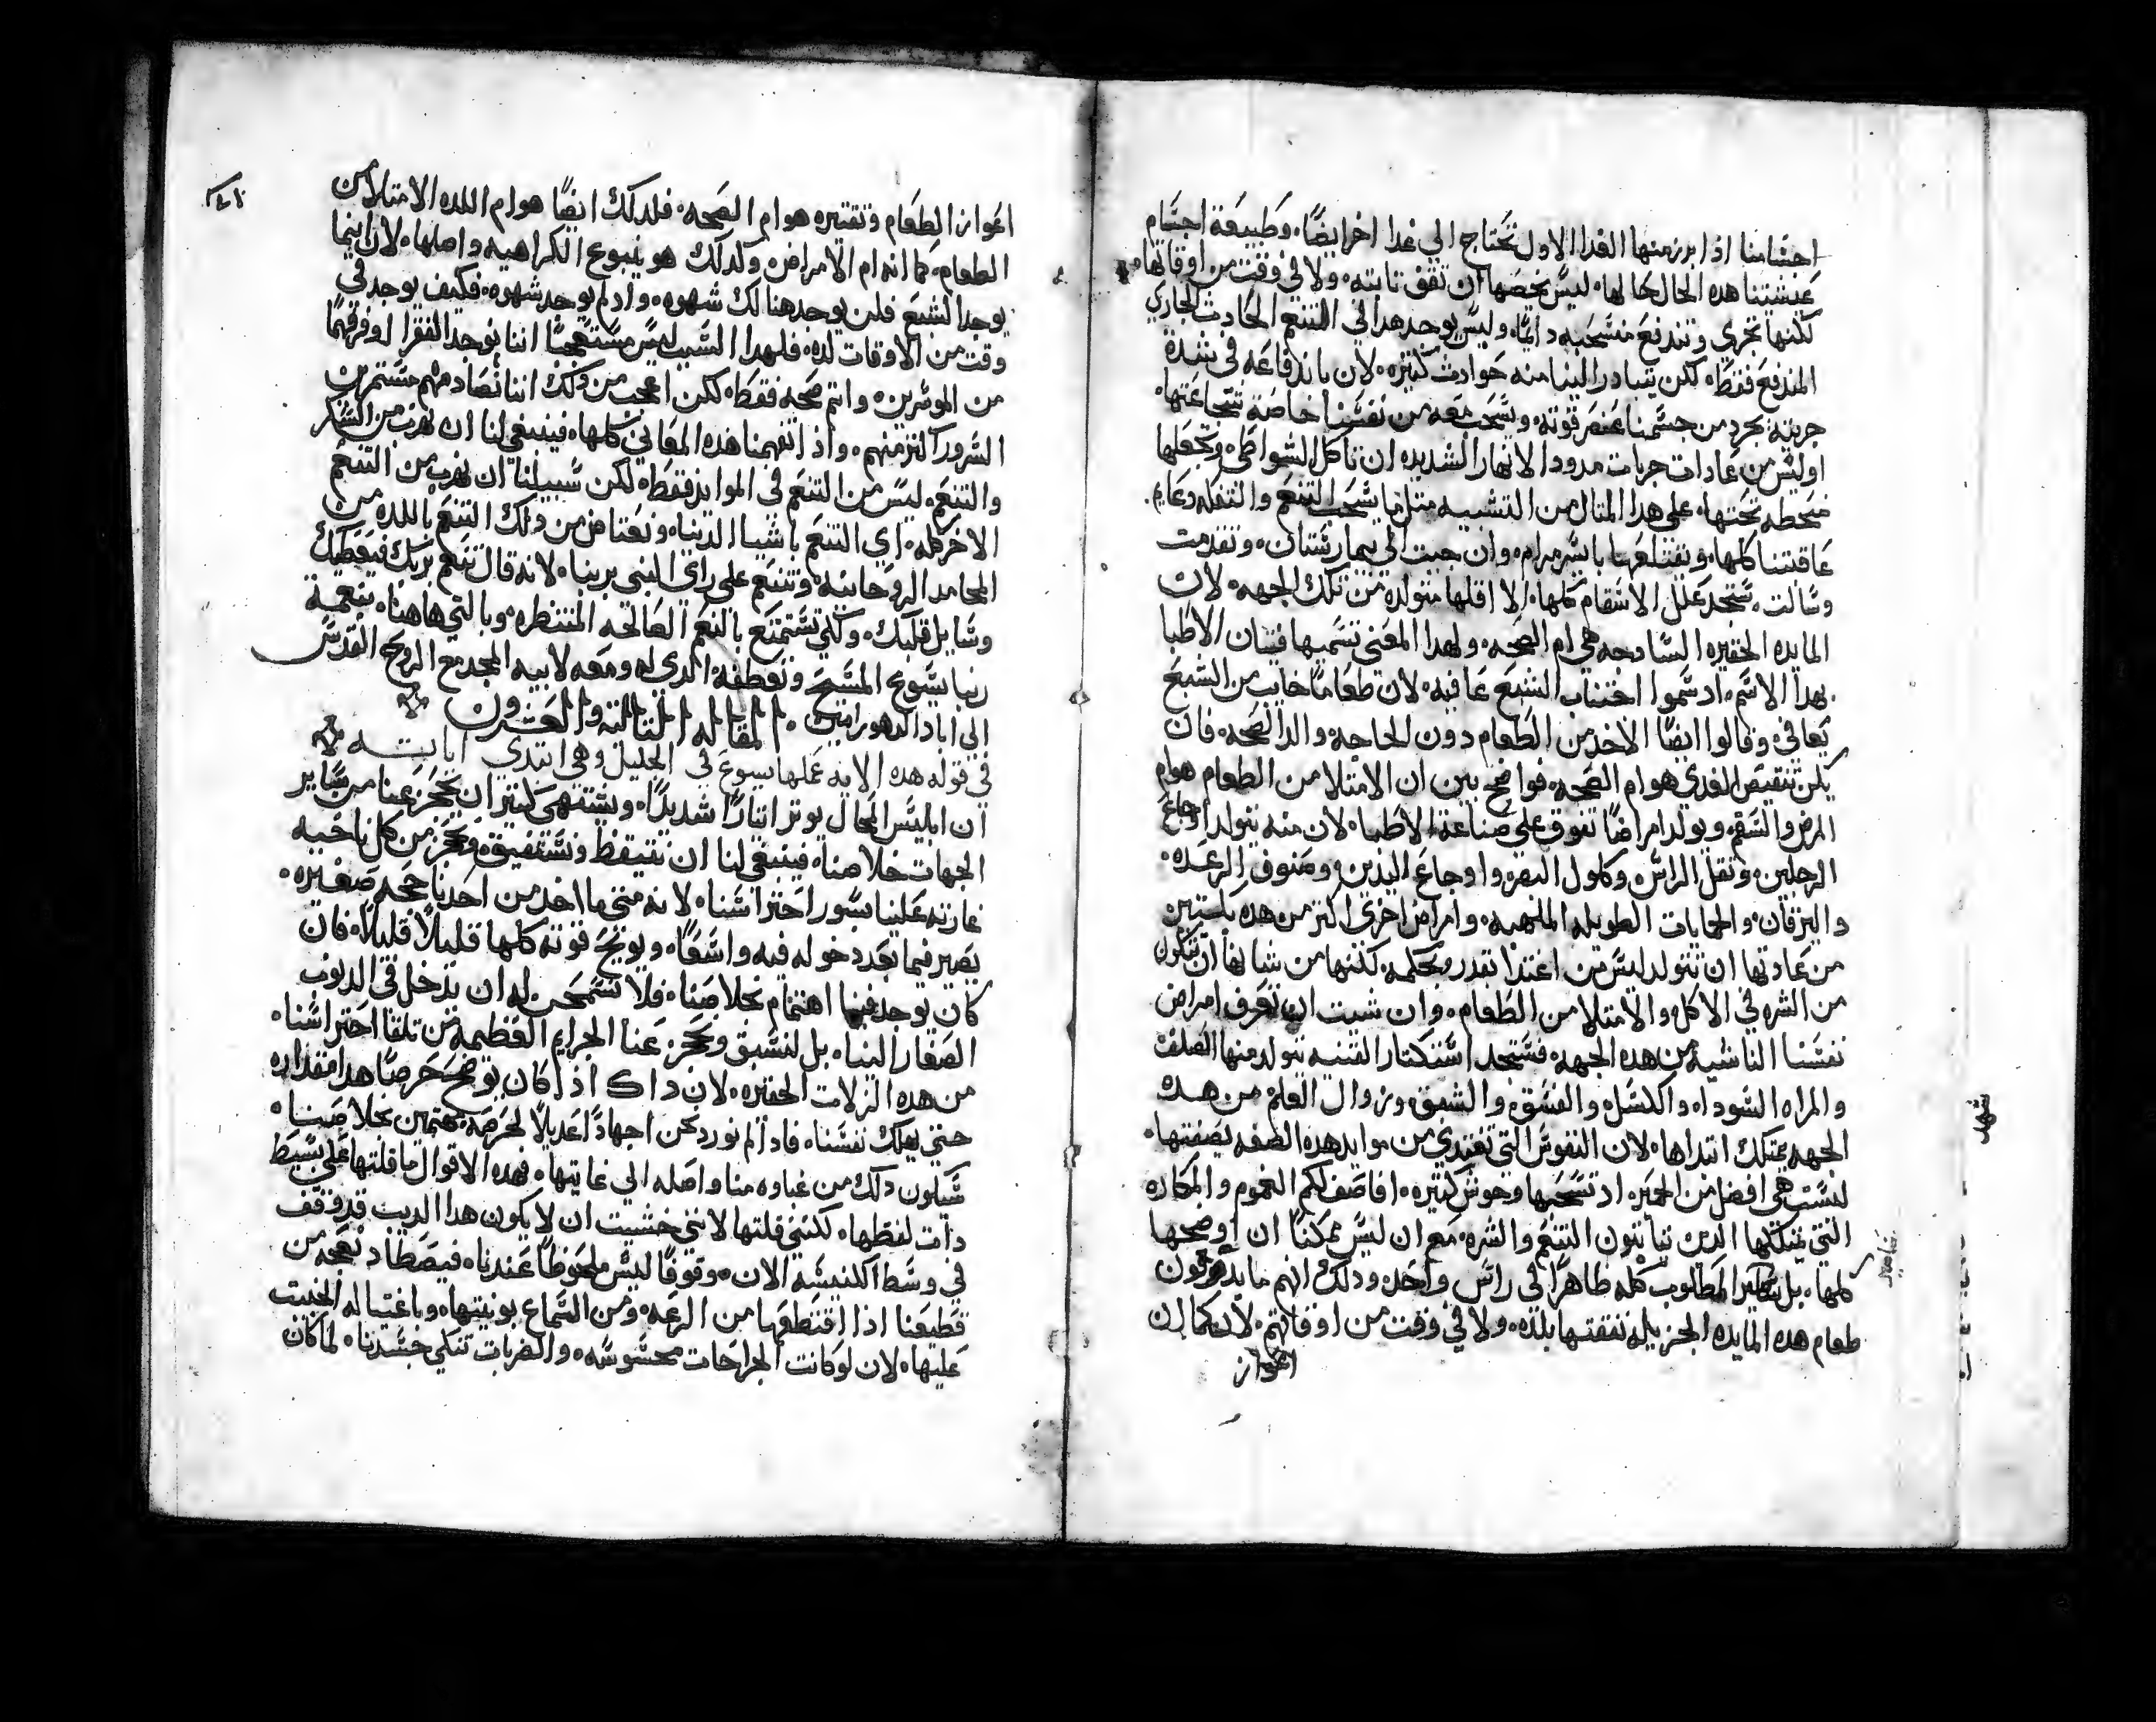 احسامنا اذا ابرزمنها الغدا الاول تحتاج الي غدا اخر ايضًا. وطبيعة اجسام
عيشتنا هده الحال حالها. ليس يخصها ان تقف تابته. ولا في وقت من اوقاتها
لكنها تجري وتندفع منسحبه دايمًا. وليس يوجد هدا في التنعم الحادث الجاري
المندفع فقط. لكن يتبادر الينا منه حوادث كتيره. لان باندفاعه في شدة
جريته يجرد من جسمنا عنصر قوته. ويسحب معه من نفسنا خاصة شجاعتها.
اوليس من عادات جريات مدود الانهار الشديده ان تاكل الشواطي. وتجعلها
منحطه تحتها. على هدا المتال من التشبيه متل ما يسحب التنعم والتفكه دعايم.
عاقبتنا كلها. وتقتلعها باسر مرام. وان جيت الي بيمارستان. وتقدمت
وسالت. ستجد علل الاسقام كلها. الا اقلها متولده من تلك الجهه. لان
المايده الحقيره السادجه هي ام الصحه. ولهدا المعنى تسميها فتيان الاطبا
بهدا الاسم. اد سموا اجتناب الشبع عافيه. لان طعامًا خايب من الشبع
يعافي. وقالوا ايضًا الاخد من الطعام دون الحاجه. والدا الصحه. فان
يكن تنقيص الغدي هو ام الصحه. فواضح بين ان الامتلا من الطعام هو ام
المرض والسقم. ويولد امراضًا تفوق على صناعة الاطبا. لان منه يتولد اوجاع
الرجلين. وتقل الراس. وكلول البصر. واوجاع اليدين. وصنوف الرعده.
واليرقان. والحمايات الطويله الملتهبه. وامراض اخرى اكتر من هده بكتير.
من عادتها ان تتولد ليس من اغتدا بقدر وبحكمه. لكنها من شانها ان تتكون
من الشره في الاكل والامتلا من الطعام. وان شيت ان تعرف امراض
نفسنا الناشيه من هده الجهه. فستجد استكتار القنيه يتولد منها الصلف
والمراه السوداء. والكسل. والفسق. والشبق. وزوال العلم من هده
الجهه يمتلك ابتداها. لان النفوس التي تغتدي من موايد هده الصفه بصفتها.
ليست هي افضل من الحمير. اد تسحبها وحوش كتيره. افاصف لكم الغموم والمكاره
التي يمتلكها الدين يتابتون التنعم والشره. مع ان ليس ممكنًا ان اوضحها
كلها. بل ساصير المطلوب كله ظاهرًا في راس واحد. ودلك انهم ما يدوقون
طعام هده المايده الجزيله نفقتها بلده. ولا في وقت من اوقاتهم. لان كما ان
اعواز
اعواز الطعام وتقتيره هو ام الصحه. فلدلك ايضًا هو ام اللده. الامتلا من
الطعام. كما انه ام الامراض. وكدلك هو ينبوع الكراهيه واصلها. لان اينما
يوجد الشبع فلن يوجد هنالك شهوه. واد لم يوجد شهوه. فكيف يوجد في
وقت من الاوقات لده. فلهدا السبب ليس مستعجبًا اننا نوجد الفقرا اوفر فهمًا
من الموسرين. واتم صحه فقط. لكن اعجب من دلك اننا نصادفهم مستمرين
السرور اكتر منهم. واذ اتفهمنا هده المعاني كلها. فينبغي لنا ان نهرب من السكر
والتنعم. ليس من التنعم في الموايد فقط. لكن سبيلنا ان نهرب من التنعم
الاخر كله. اي التنعم باشيا الدنيا. ونعتاض من دلك التنعم باللده من
المحامد الروحانيه. ونتنعم على راي النبي بربنا. لانه قال تنعم بربك فيعطيك
وسايل قلبك. ولكي نستمتع بالنعم الصالحه المنتظره. وبالتي هاهنا. بنعمة
ربنا يسوع المسيح وتعطفه. الدي له ومعه لابيه المجد مع الروح القدس
الي اباد الدهور امين. المقاله التالته والعشرون
في قوله هده الايه عملها يسوع في الجليل وهي ابتدى اياته
ان ابليس المحال يوتر اتارًا شديدًا. ويشتهي كتير ان يحجز عنا من ساير
الجهات خلاصنا. فينبغي لنا ان نتيقظ ونستفيق. ونحجز من كل ناحيه
غارته علينا بسور احتراسنا. لانه متى ما اخد من احدنا حجه صغيره.
يصير فيما بعد دخوله فيه واسعًا. ويولج قوته كلها قليلاً قليلاً. فان
كان يوجد فينا اهتمام بخلاصنا. فلا نسمحن له ان تدخل في الدنوب
الصغار البنا. بل لنسبق ونحجز عنا الجرايم العظيمه من تلقا احتراسنا.
من هده الزلات الحقيره. لان داك اذا كان يوضح حرصًا هدا مقداره
حتى يهلك نفسنا. فاد الم نورد نحن اجهادًا عديلاً لحرصه مهتمين بخلاصنا.
سيكون دلك من غباوه منا واصله الي غايتها. فهده الاقوال ما قلتها على بسيط
دات لفظها. لكنني قلتها لانني خشيت ان لا يكون هدا الديب قد وقف
في وسط الكنيسه الان. وقوفًا ليس ملحوظًا عندنا. فيصطاد نعجه من
قطيعنا اذا اقتطعها من الرعيه. ومن السماع بونيتها. وباغتياله الخبيت
عليها. لان لو كانت الجراحات محسوسه. والضربات تنكي جسدنا. لما كان